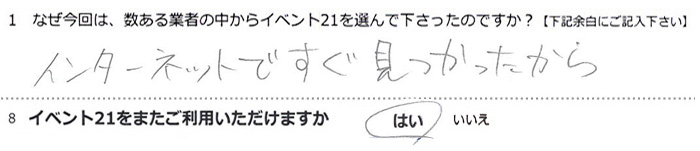 1 なぜ今回は、数ある業者の中からイベント21を選んで下さったのですか？【下記余白にご記入下さい】
インターネットですぐ見つかったから
8 イベント21をまたご利用いただけますか はい いいえ